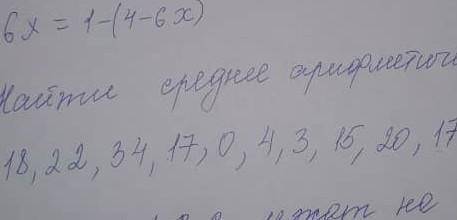 6x = 1-(4-6x)
Найти среднее арифметич
18, 22, 34, 17, 0, 4, 3, 15, 20, 17
на